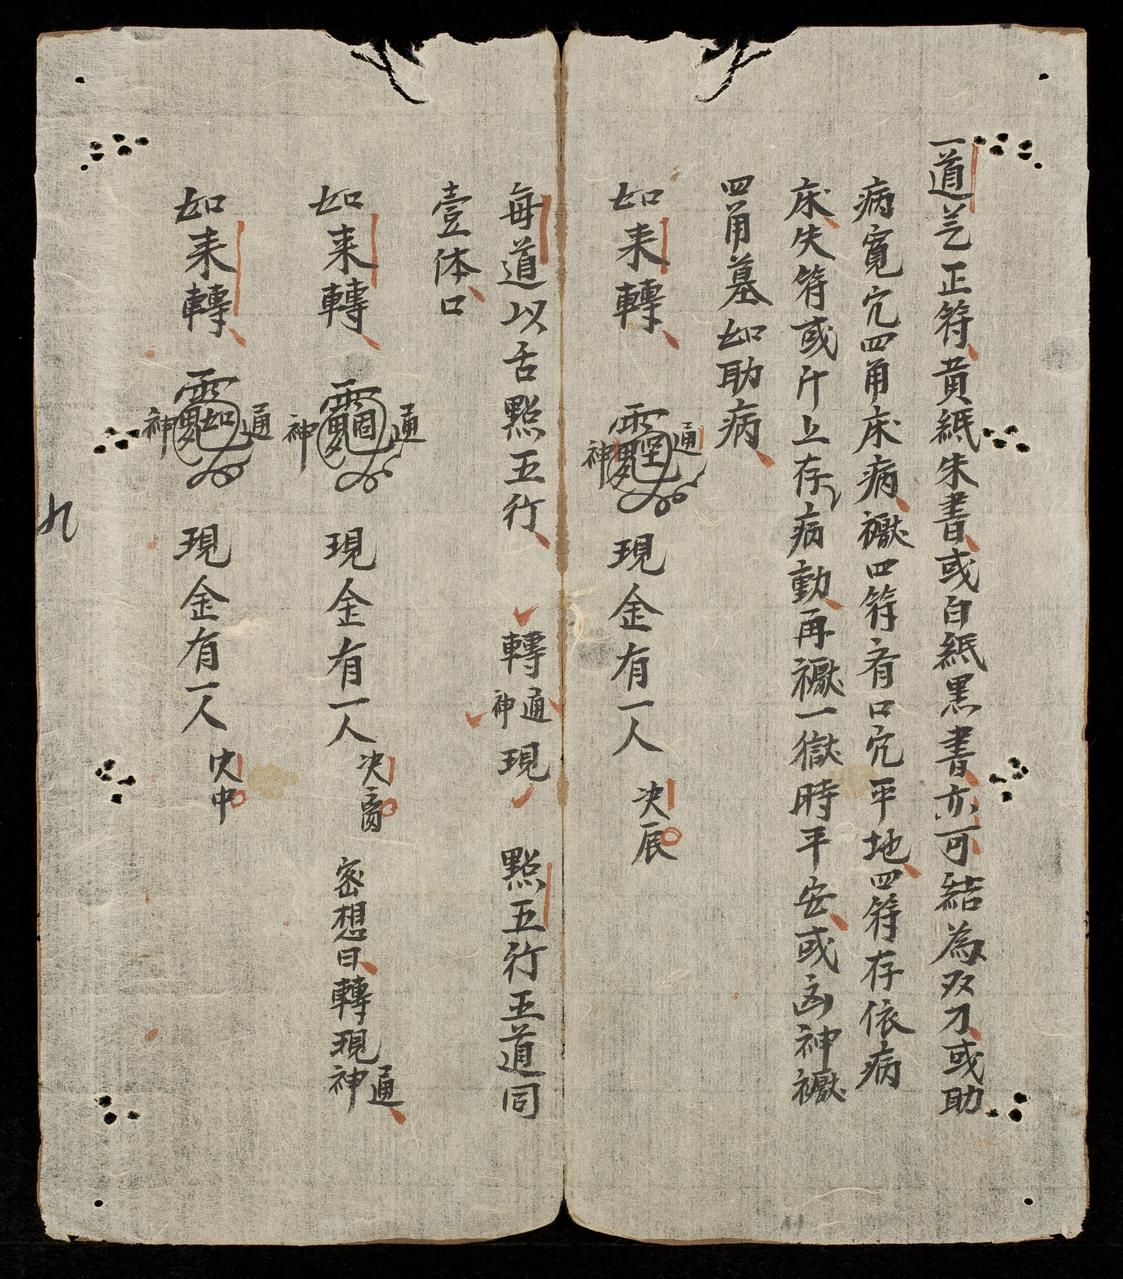 一道芝正符黄紙朱書或白紙黒書亦可結為双刀或助
病寛穴四角床病禳四符有口穴平地四符存依病
床失符或斤上存病動再禳一獄時平安或凶神禳
四角墓如助病
如来轉 神通 現金有一人 决辰
每道以舌㸃五行 轉神通現 㸃五行五道同
壹体口
如来轉 神通 現金有一人 决 密想曰轉現神通
如来轉 神通 現金有一人 决中
九